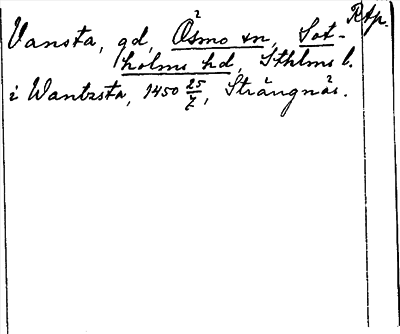 Rtp.
Vansta, gd, Ösmo sn, Sot-
holms hd, Sthlms l.
i Wantzsta, 1450 25/7, Strängnäs.